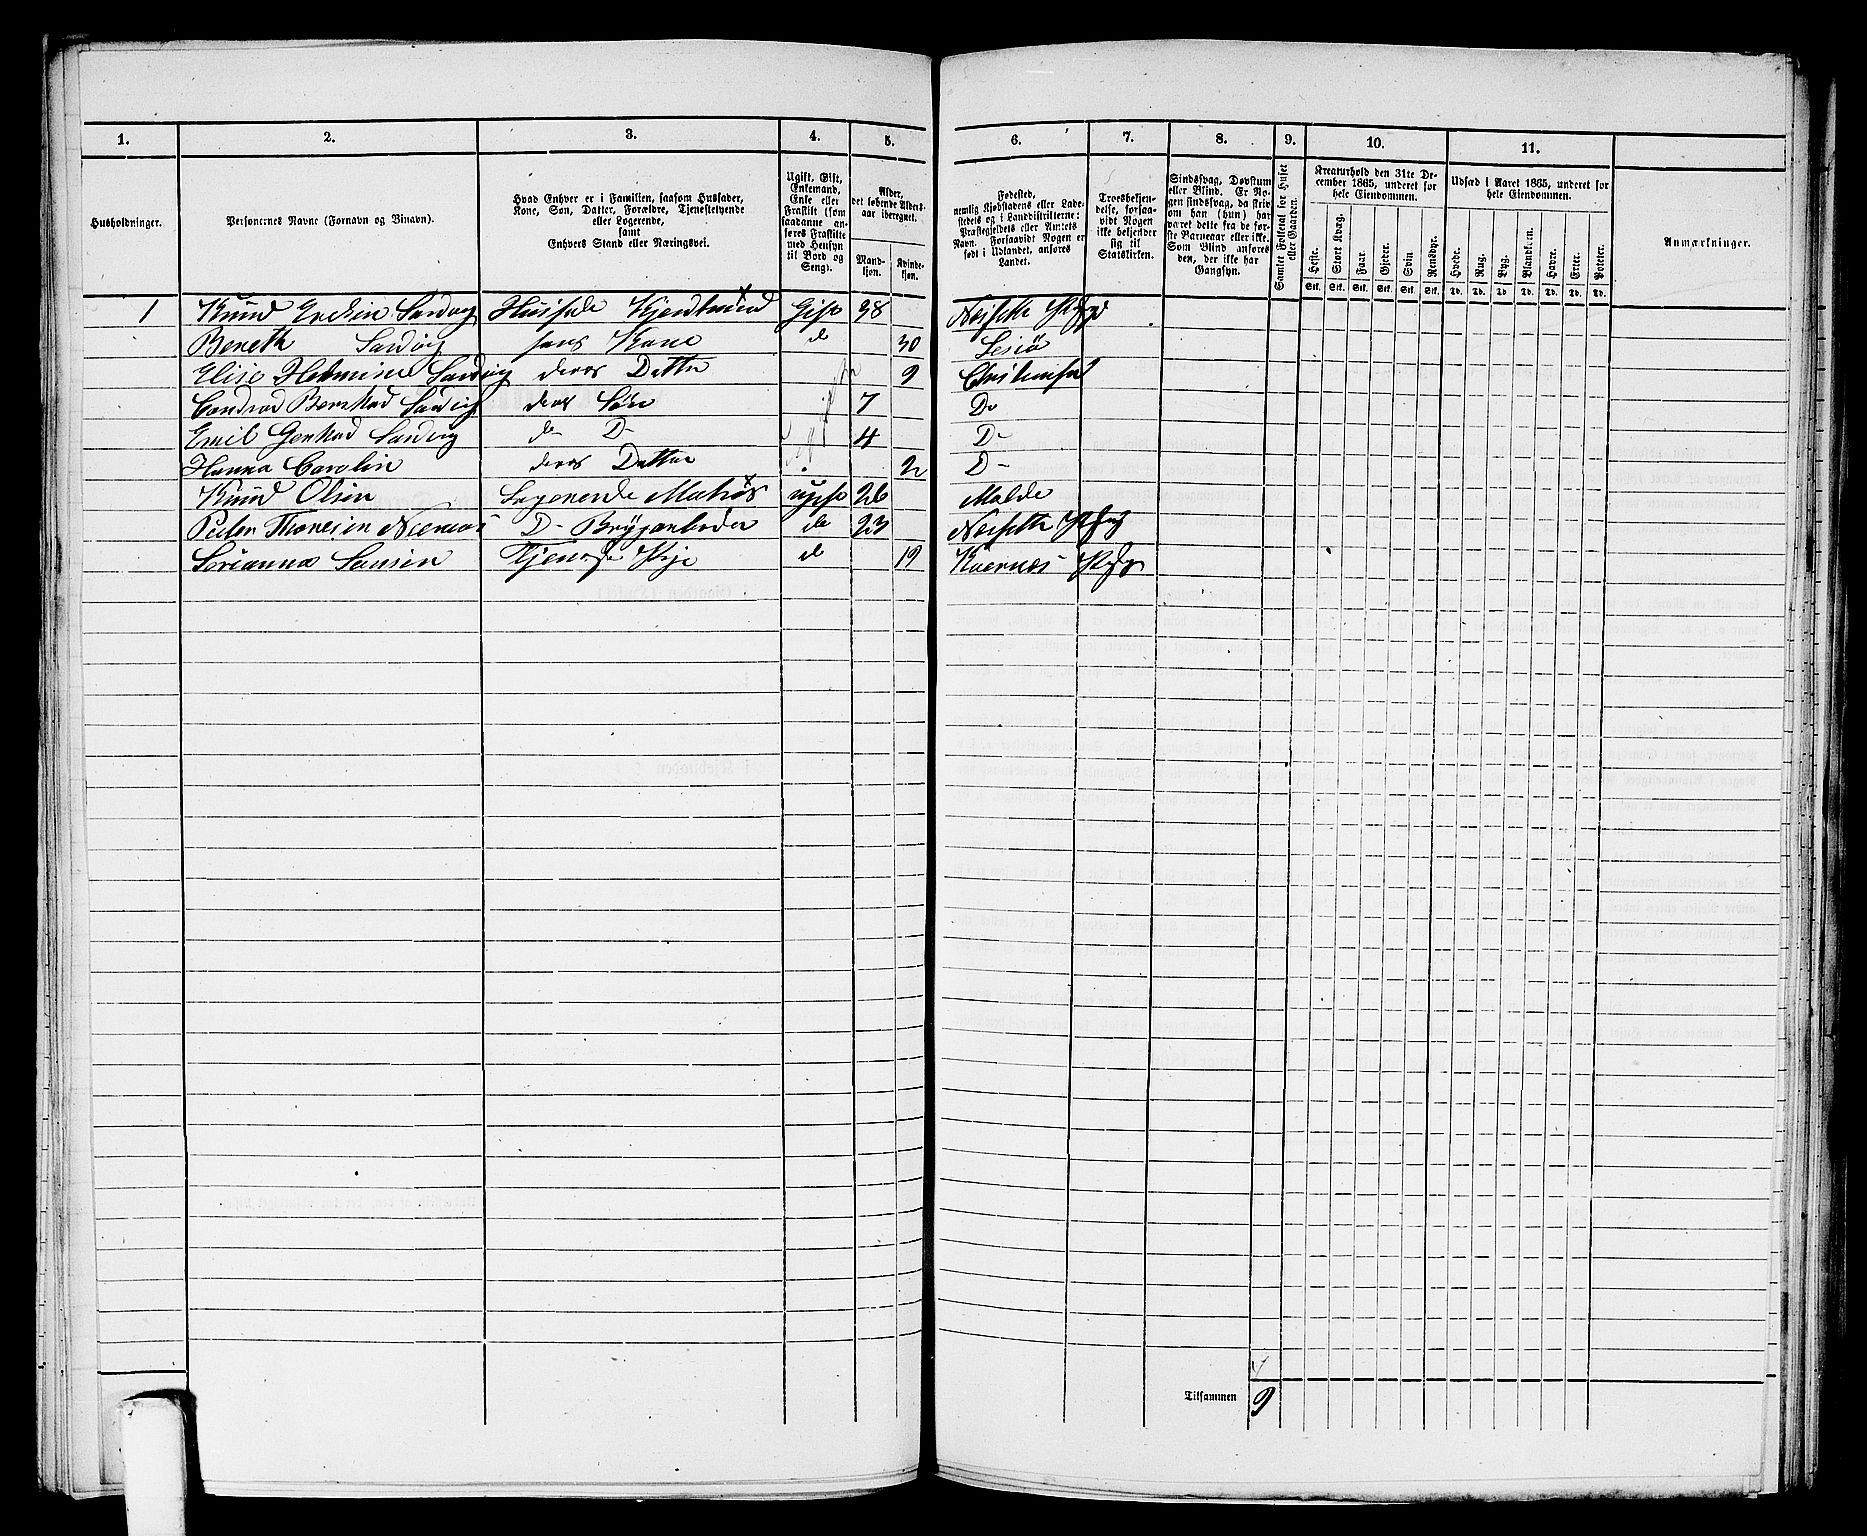 1. 2. 3. 4. 5. 6. 7. 8. 9. 10. 11.
Husholdninger.
Personernes Navne (Fornavn og Binavn).
Hvad Enhver er i Familien, saasom Husfader,
Kone, Søn, Datter, Forældre, Tjenestetyende
eller Logerende,
samt
Enhvers Stand eller Næringsvei.
Ugift, Gift,
Enkemand,
Enke eller
Fraskilt (som
saadanne an-
føres Fraskilte
med Hensyn
til Bord og
Seng).
Alder,
det løbende Alders-
aar iberegnet.
Mand-
kjøn.
Kvinde-
kjøn.
Fødested,
nemlig Kjøbstadens eller Lade-
stedets og i Landdistrikterne:
Præstegjeldets eller Amtets
Navn. Forsaavidt Nogen er
født i Udlandet, anføres
Landet.
Troesbekjen-
delse, forsaa-
vidt Nogen
ikke bekjender
sig til
Statskirken.
Sindssvag, Døvstum
eller Blind. Er No-
gen sindssvag, da skriv
om han (hun) har
været dette fra de før-
ste Barneaar eller ikke.
Som Blind anføres
den, der ikke har
Gangsyn.
Samlet Folketal for Huset
eller Gaarden.
Kreaturhold den 31te De-
cember 1865, underet for
hele Eiendommen.
Heste. Stort Kvæg. Faar. Gjeder. Svin. Rensdyr.
Stk. Stk. Stk. Stk. Stk. Stk.
Udsæd i Aaret 1865, underet for
hele Eiendommen.
Hvede. Rug. Byg. Blandkorn. Havre. Erter. Poteter.
Td. Td. Td. Td. Td. Td. Td.
Anmærkninger.
1 Knud Sardvig Husfade Gift 38 Nessette Pstgjd
Bereth Sardvig hans Kone d 30 Lesiø
Elise Sardvig deres Datter 9 Christiansund
Sardvig deres Søn 7 Do
Emil Sardvig do D- 4 D-
Hanna Carolin deres Datter 2 D-
Knud Olsen Logerende Matros ugift 26 Molde
Peder D- do 23 Nessette Pstgjd
Sorianna Pige d 19 Kvernæs Pstgjd
Tilsammen 9